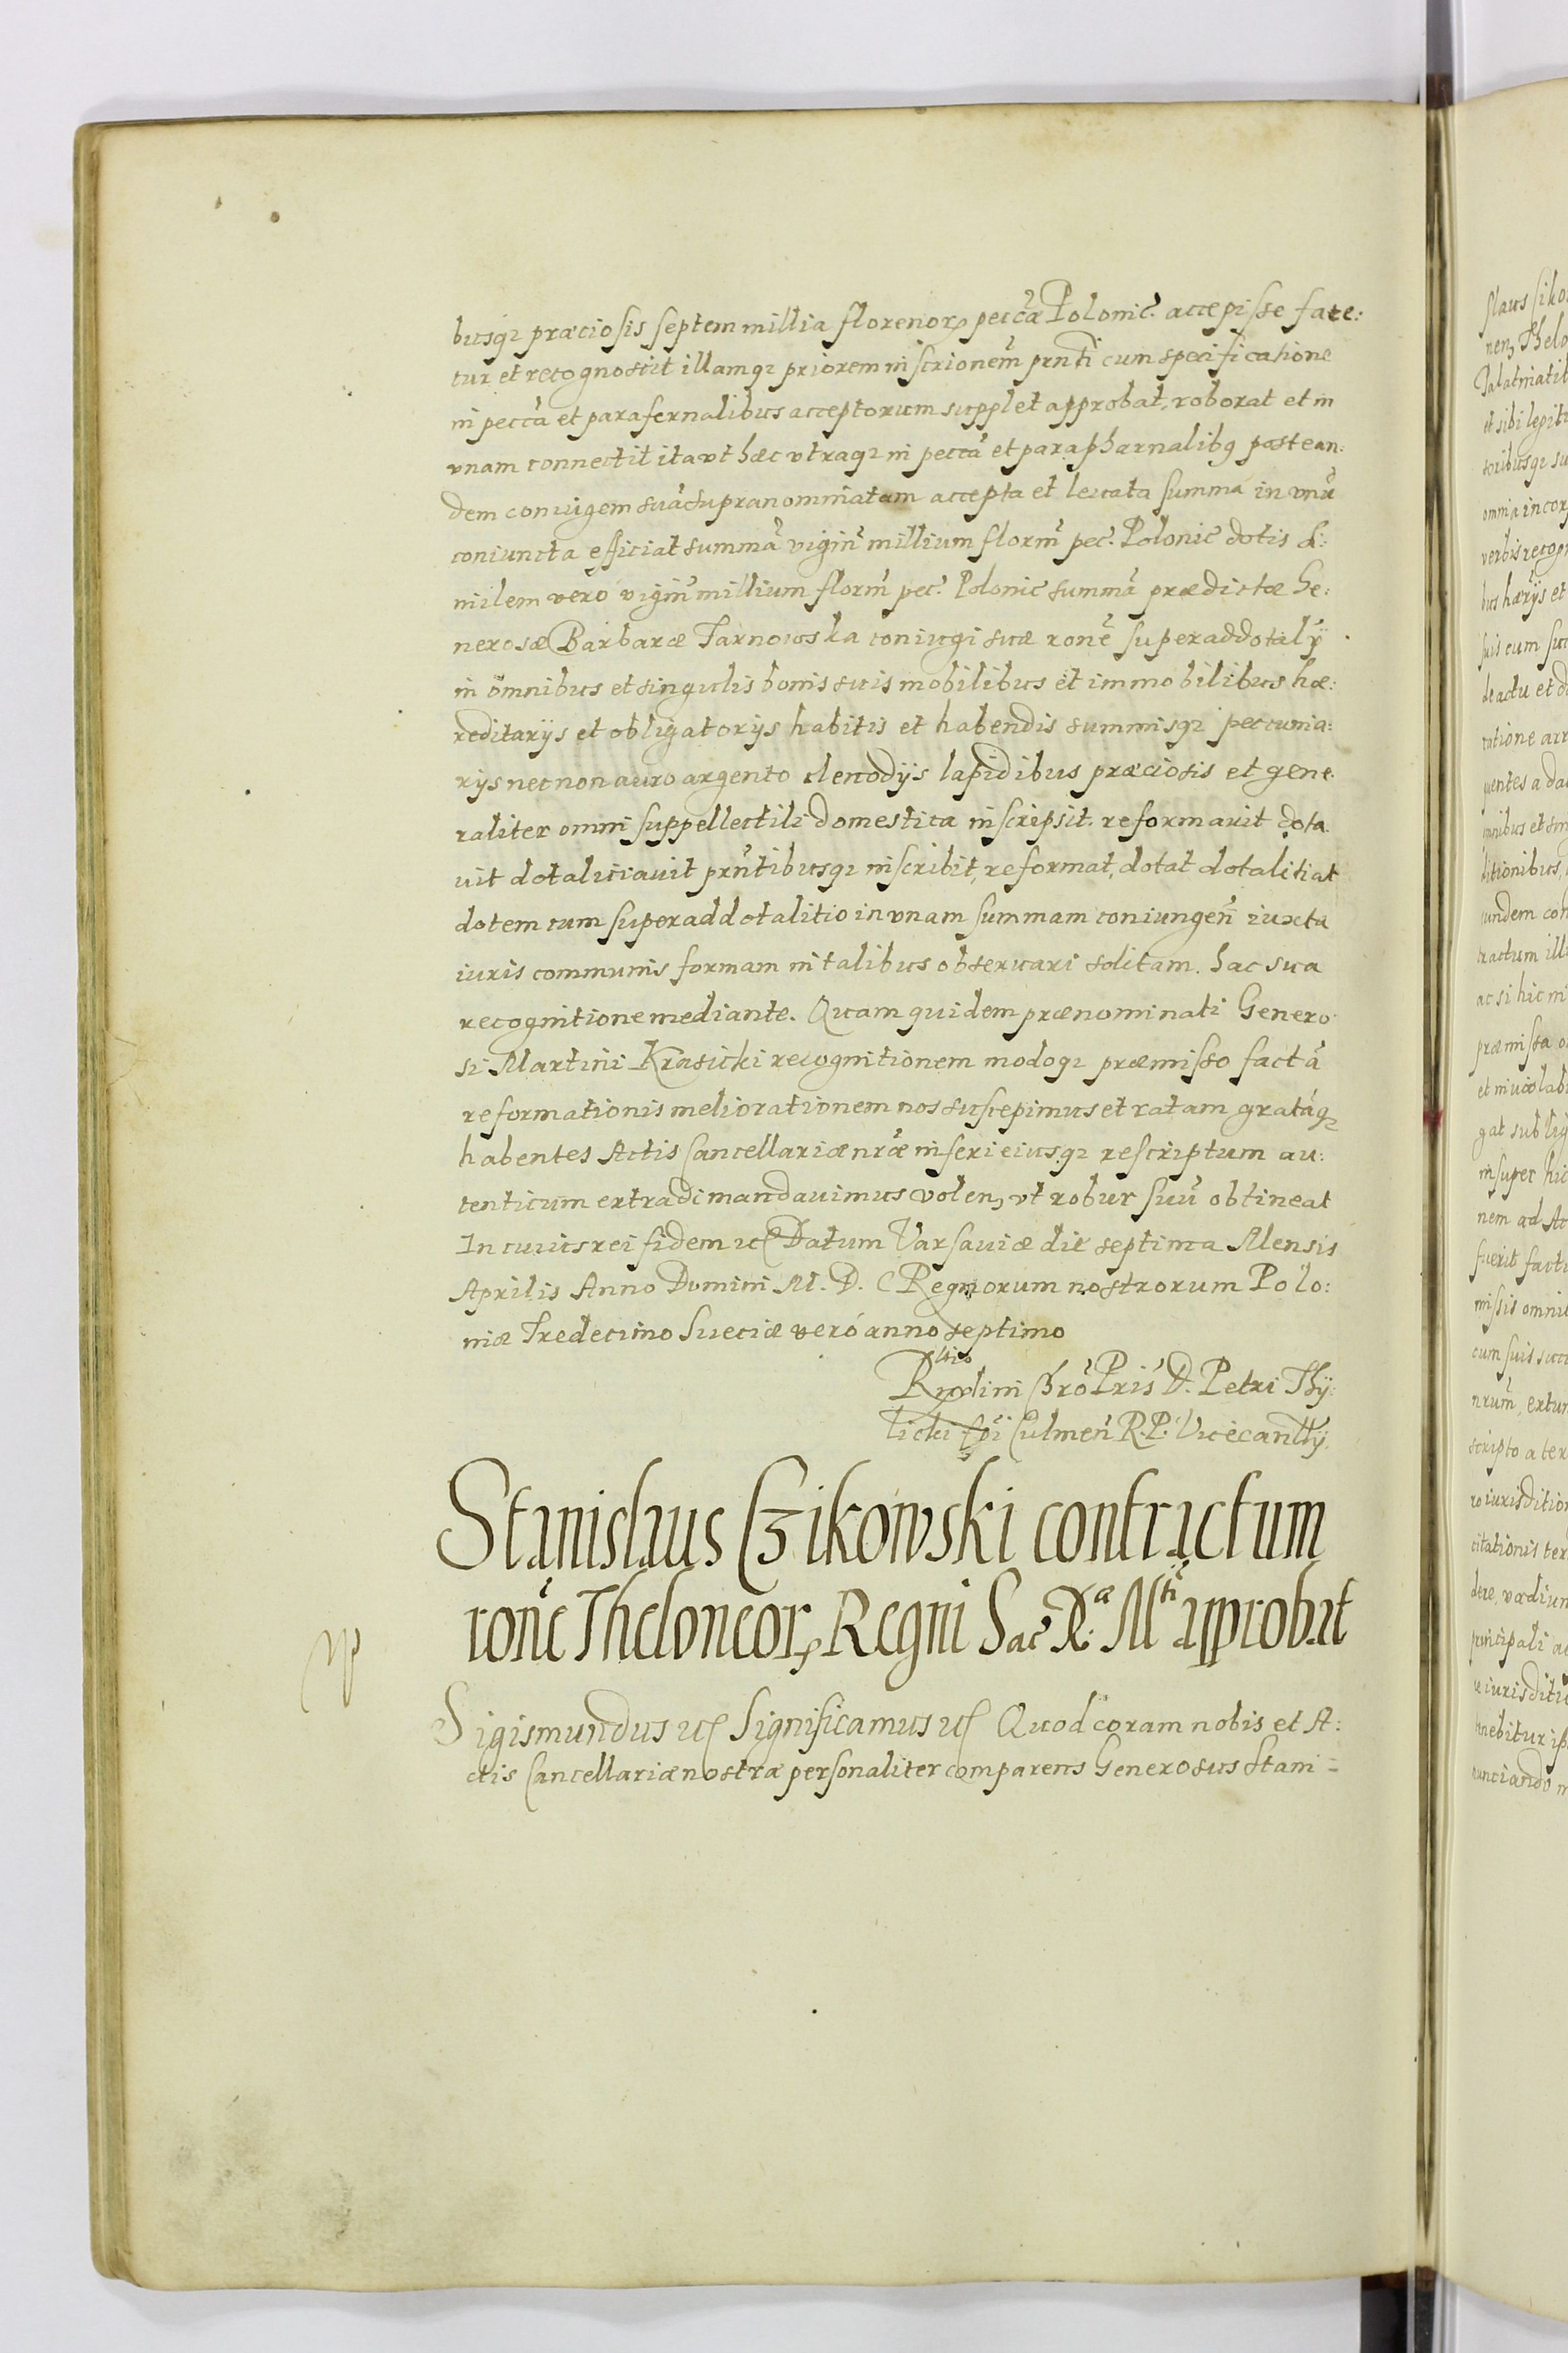 busq₃ præciosis septem millia florenorꝝ peccæ Polonic. accepisse fate:
tur et recognoscit illamq₃ priorem inscrionem̃ prnti cum specificatione
in peccã et parafernalibus acceptorum supplet approbat, roborat et in
vnam connectit ita vt hæc vtraq₃ in peccã et parapharnalibꝰ post ean:
dem coniugem suã supranominatam accepta et leuata summa in vnã
coniuncta efficiat summã vigin̄ millium florm̃ pec. Polonic dotis si:
milem verò vigin̄ millium florm̃ pec. Polonic summã prædictæ Ge:
nerosæ Barbaræ Tarnowska coniugi suæ ronẽ superaddotalÿ
in omnibus et singulis bonis suis mobilibus et immobilibus hæ:
reditarijs et obligatorijs habitis et habendis summisq₃ peccunia:
rijs necnon auro argento clenodijs lapidibus præciosis et gene:
raliter omni suppellectili domestica inscripsit. reformauit dota:
uit dotaliciauit prñtibusq₃ inscribit, reformat, dotat dotalitiat
dotem cum superaddotalitio in vnam summam coniungeñ iuxta
iuris communis formam in talibus obseruari solitam. hac sua
recognitione mediante. Quam quidem prænominati Genero:
si Martini Krasicki recognitionem modoq₃ præmisso factã
reformationis meliorationem nos suscepimus et ratam gratãq₃
habentes Actis Cancellariæ nræ inseri eiusq₃ rescriptum au:
tenticum extradi mandauimus volen, vt robur suũ obtineat
In cuius rei fidem etc Datum Varsauiæ die septima Mensis
Aprilis Anno Domini M. D. C Regnorum nostrorum Polo:
niæ Tredecimo Sueciæ veró anno septimo
Rltio
Rndini Chrõ Pris D. Petri Thÿ:
licki Epi Culmeñ R. P. Vicecanllÿ
Stanislaus Czikowski contractum
ronẽ Theloneorꝝ Regni Sac R.ᵃ Mᵗⁱ approbat
Sigismundus etc Significamus etc Quod coram nobis et A:
ctis Cancellariæ nostræ personaliter comparens Generosus Stani=
slaus
Thelo
Palatinatib
et sibi
omnia incor
verbis recogn
bus hærijs et
suis cum suc
de actu et
mnibus et sin
ditionibus,
undem con
tractum ill
ac si hic in
præmissa
gat sub
insuper hic
nem ad Ac
fuerit facti
missis omni
cum suis succ
nrum̃, extun
scripto a ter
ro iurisdition
citationis ter
dere, vadium
principali
iurisditio
nebitur
nunciando